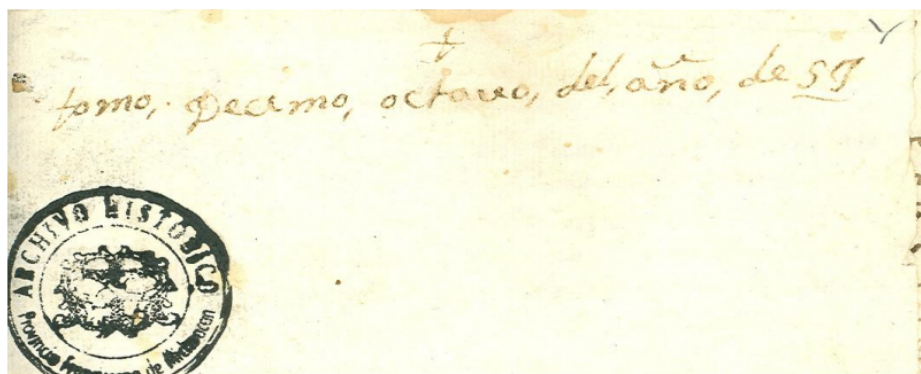 tomo, Decimo, octauo, del, año, de 57
ARCHIVO HISTORICO
Provincia Franciscana de Michoacán